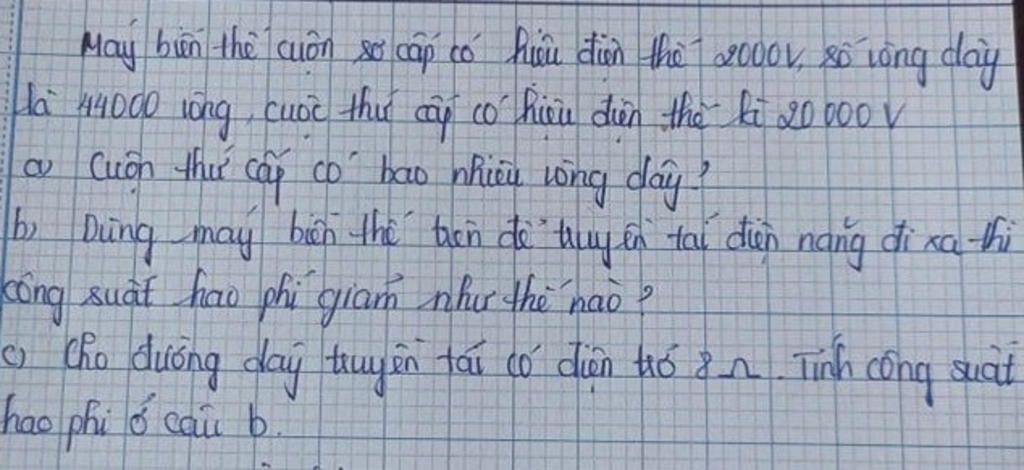 Máy biến thế cuộn sơ cấp có hiệu điện thế 2000V, số vòng dây
là 44000 vòng, cuộc thứ cấp có hiệu điện thế là 20000V
a) Cuộn thứ cấp có bao nhiêu vòng dây?
b) Dùng máy biến thế trên để truyền tải điện năng đi xa thì
công suất hao phí giảm như thế nào?
c) Cho đường dây truyền tải có điện trở 8Ω. Tính công suất
hao phí ở câu b.